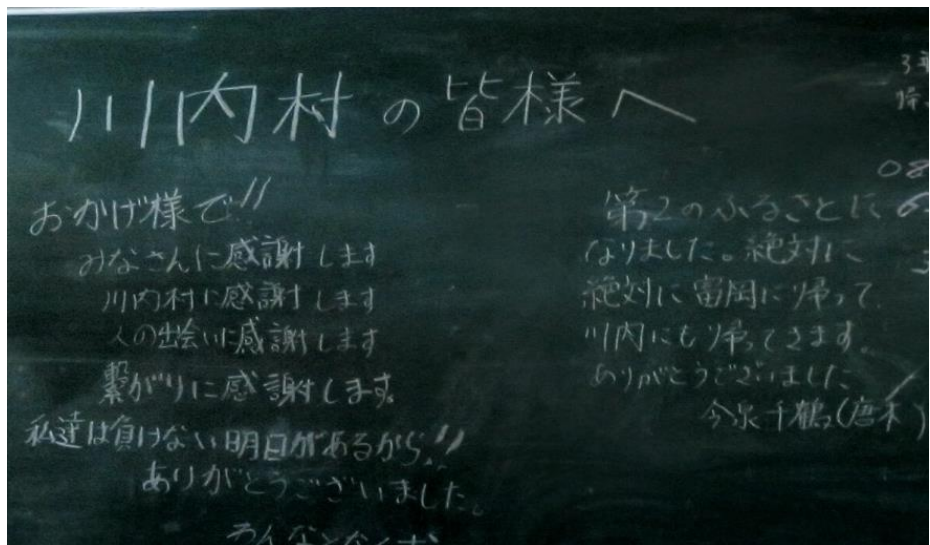 川内村の皆様へ
おかげ様で!!
みなさんに感謝します
川内村に感謝します
人の出会いに感謝します
繋がりに感謝します。
私達は負けない明日があるから!!
ありがとうございました。
第2のふるさとに
なりました。絶対に
絶対に富岡に帰って
川内にも帰ってきます。
ありがとうございました
今泉千鶴(唐木)